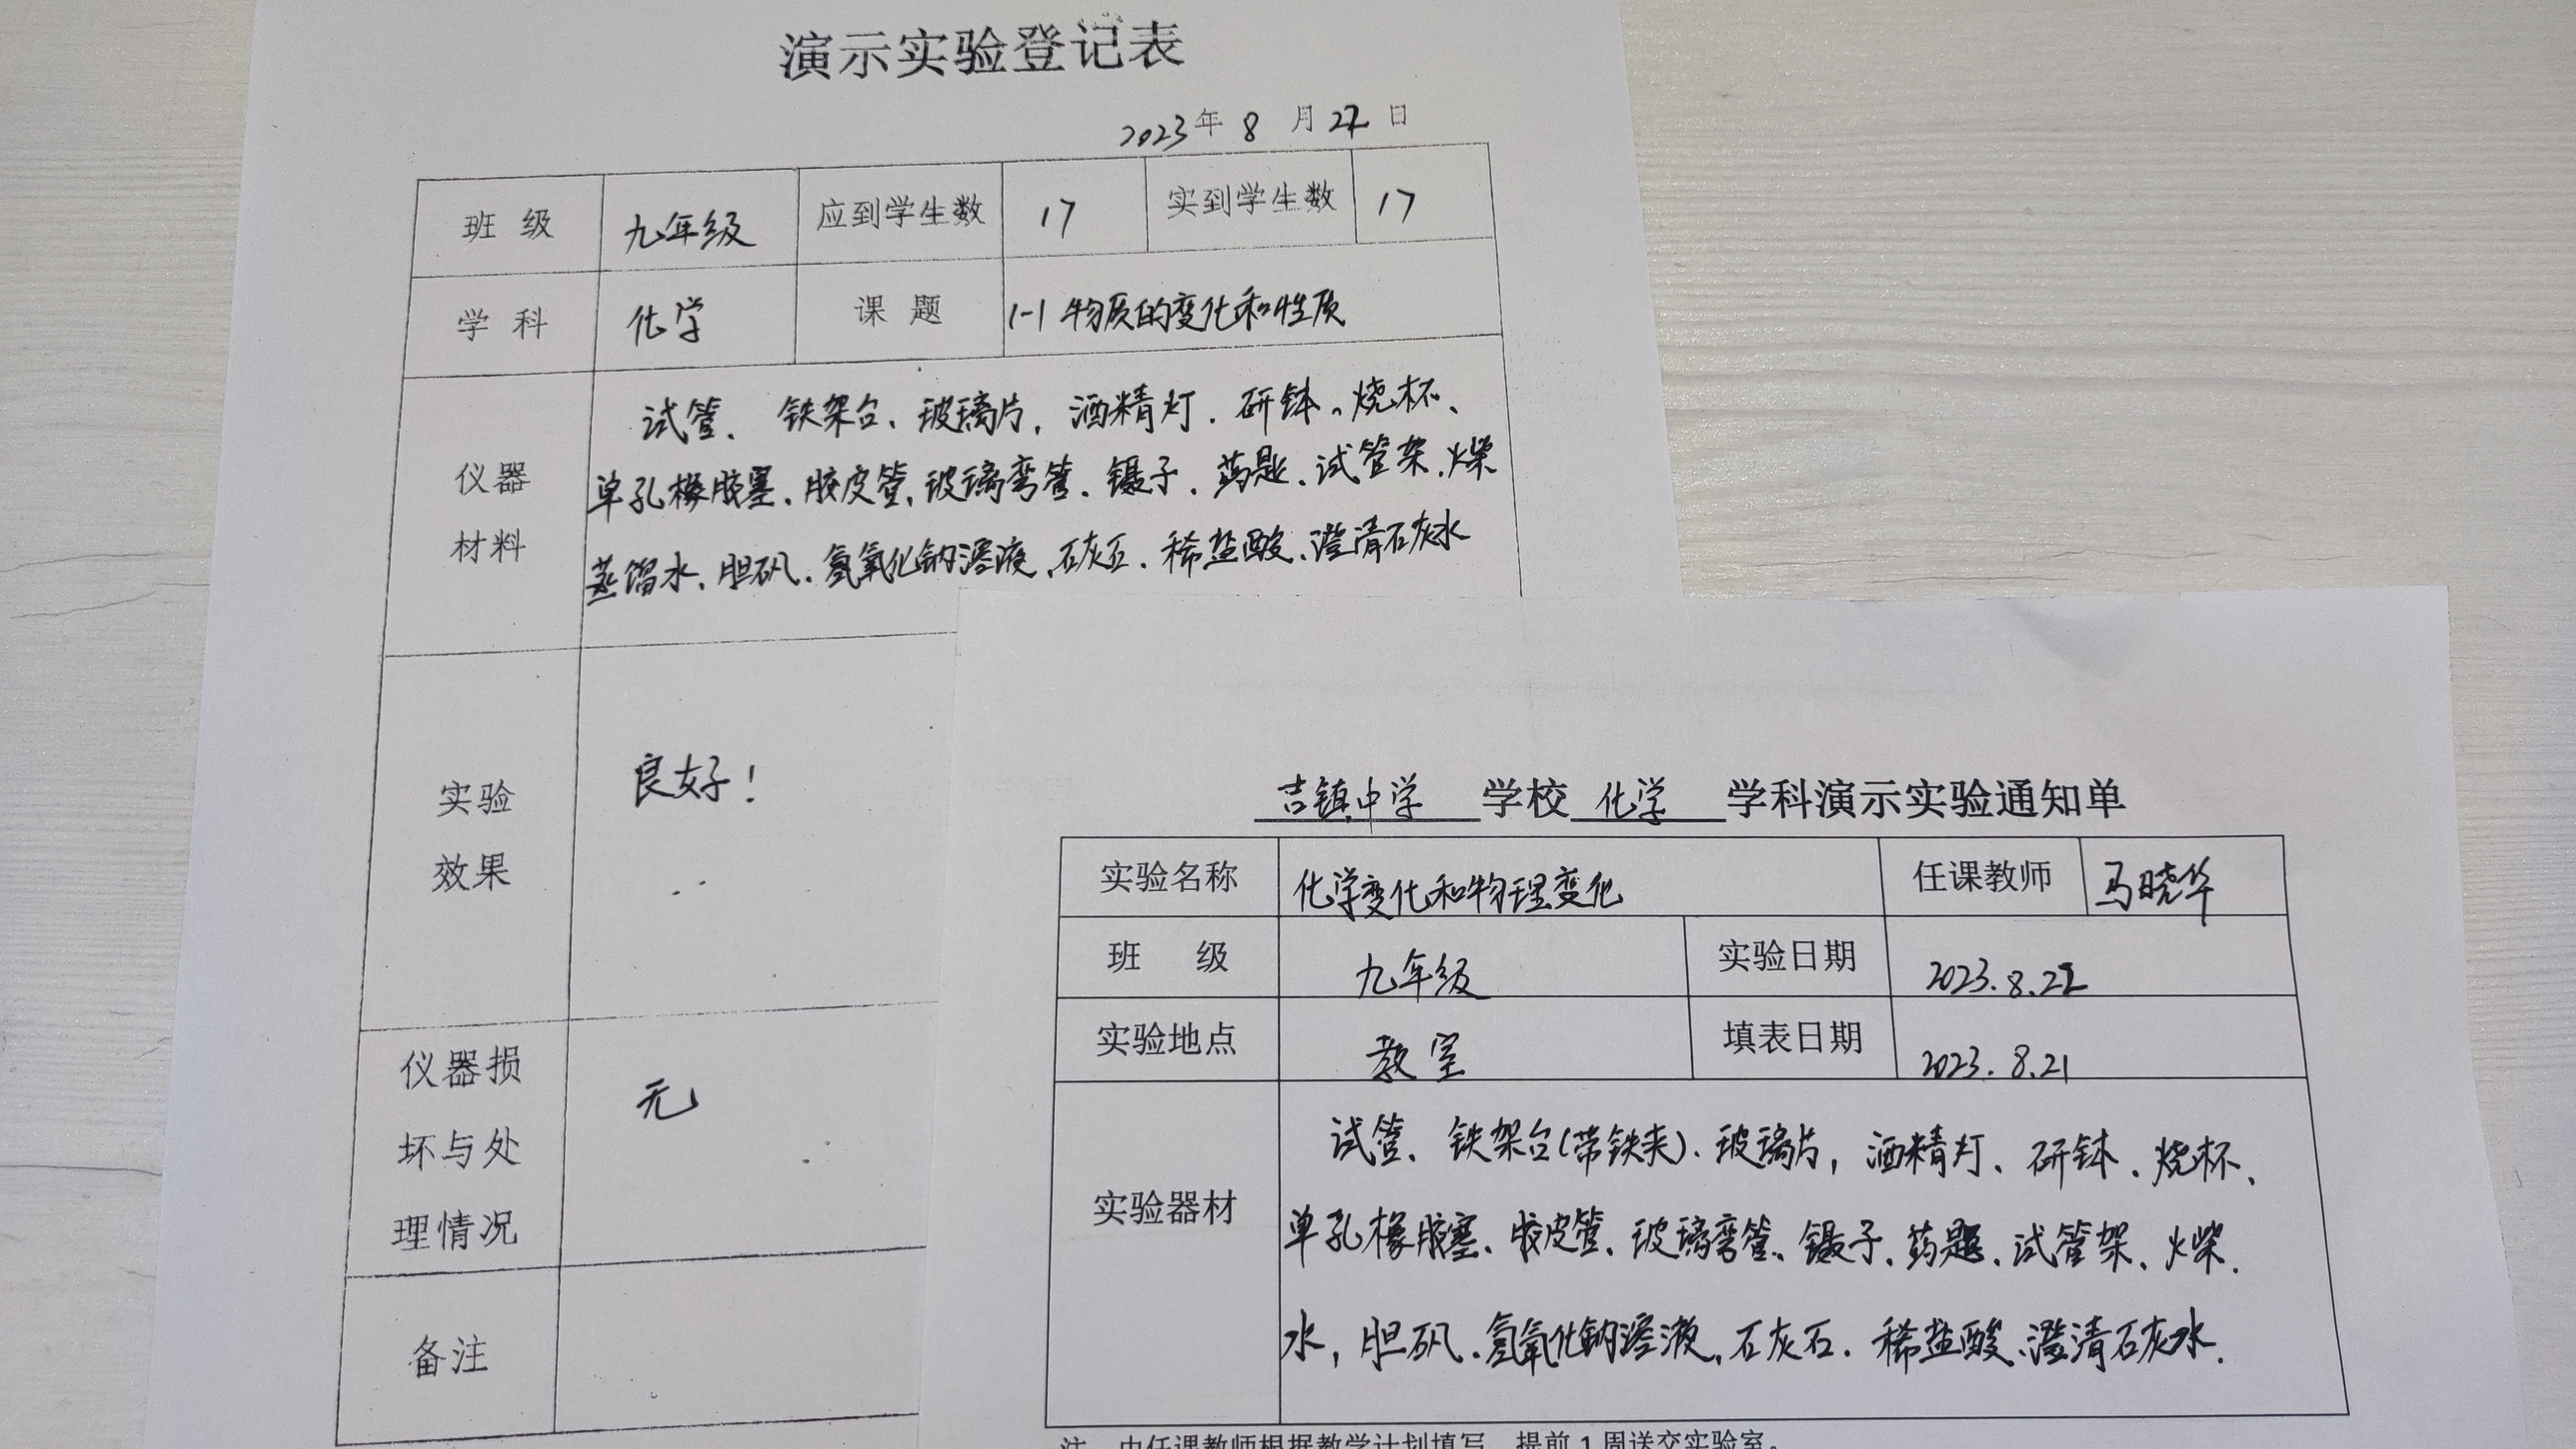 演示实验登记表
2023年 8 月 22 日
班 级 九年级 应到学生数 17 实到学生数 17
学 科 化学 课 题 1-1 物质的变化和性质
仪器
材料
试管、铁架台、玻璃片、酒精灯、研钵、烧杯、
单孔橡胶塞、胶皮管、玻璃弯管、镊子、药匙、试管架、火柴
蒸馏水、胆矾、氢氧化钠溶液、石灰石、稀盐酸、澄清石灰水
实验
效果
良好！
仪器损
坏与处
理情况
无
备注
吉镇中学 学校 化学 学科演示实验通知单
实验名称 化学变化和物理变化 任课教师 马晓华
班 级 九年级 实验日期 2023.8.22
实验地点 教室 填表日期 2023.8.21
实验器材
试管、铁架台(带铁夹)、玻璃片，酒精灯、研钵、烧杯、
单孔橡胶塞、胶皮管、玻璃弯管、镊子、药匙、试管架、火柴.
水，胆矾、氢氧化钠溶液、石灰石、稀盐酸、澄清石灰水.
注 由任课教师根据教学计划填写，提前1周送交实验室。